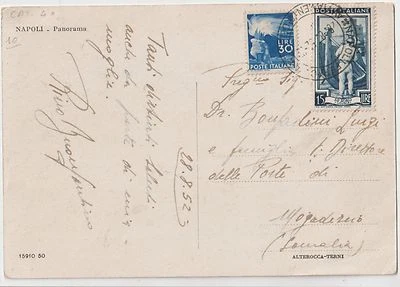 NAPOLI - Panorama
Tanti distinti saluti
anche da parte di mia
moglie.
28.8.52
LIRE
30
POSTE ITALIANE
POSTE ITALIANE
15 LIRE
Preg.mo Sig.
Dr. Bonfadini Luigi
e famiglia
delle Poste di
Mogadiscio
(Somalia)
15910 50
ALTEROCCA-TERNI